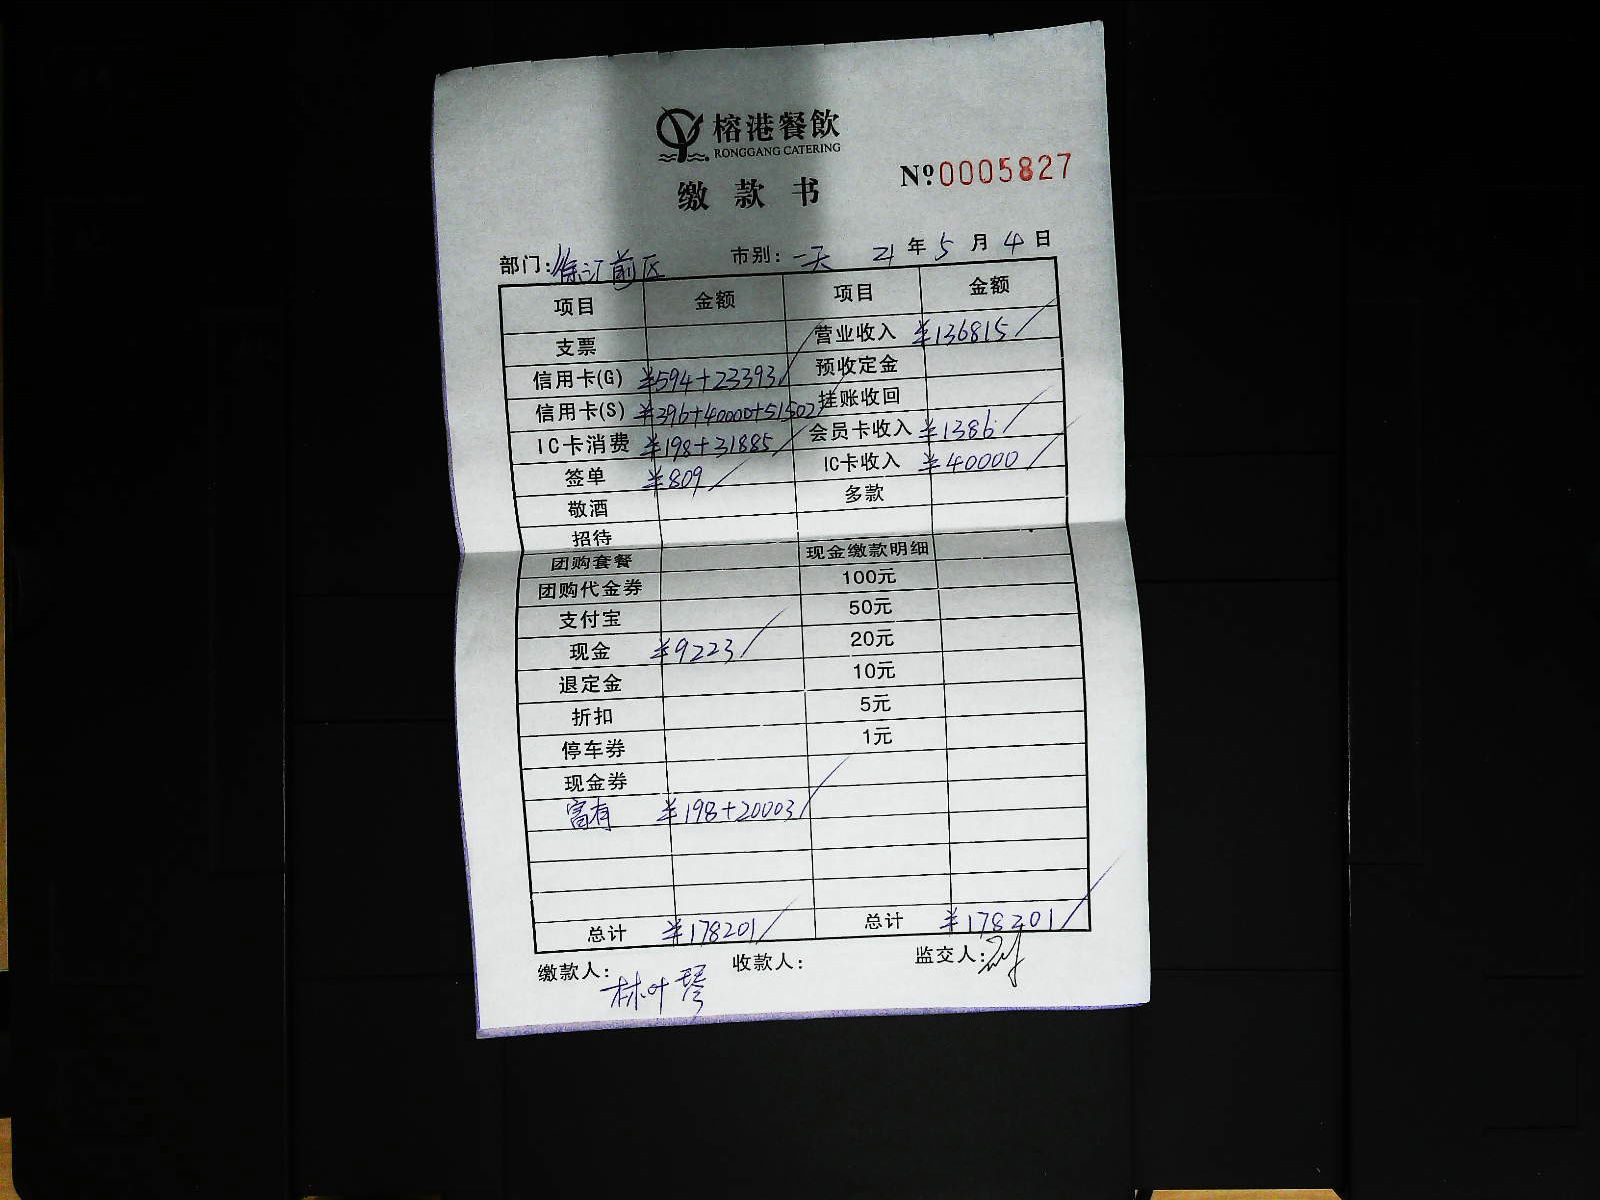 榕港餐飲
RONGGANG CATERING
缴款书
№0005827
部门:徐汇前区 市别:一天 21年5月4日
项目 金额 项目 金额
支票 营业收入 ¥136815
信用卡(G) ¥594+23393 预收定金
信用卡(S) ¥396+40000+51502 挂账收回
IC卡消费 ¥198+31885 会员卡收入 ¥1386
签单 ¥809 IC卡收入 ¥40000
敬酒 多款
招待
团购套餐 现金缴款明细
团购代金券 100元
支付宝 50元
现金 ¥9223 20元
退定金 10元
折扣 5元
停车券 1元
现金券
富有 ¥198+20003
总计 ¥178201 总计 ¥178201
缴款人: 林叶琴 收款人: 监交人: